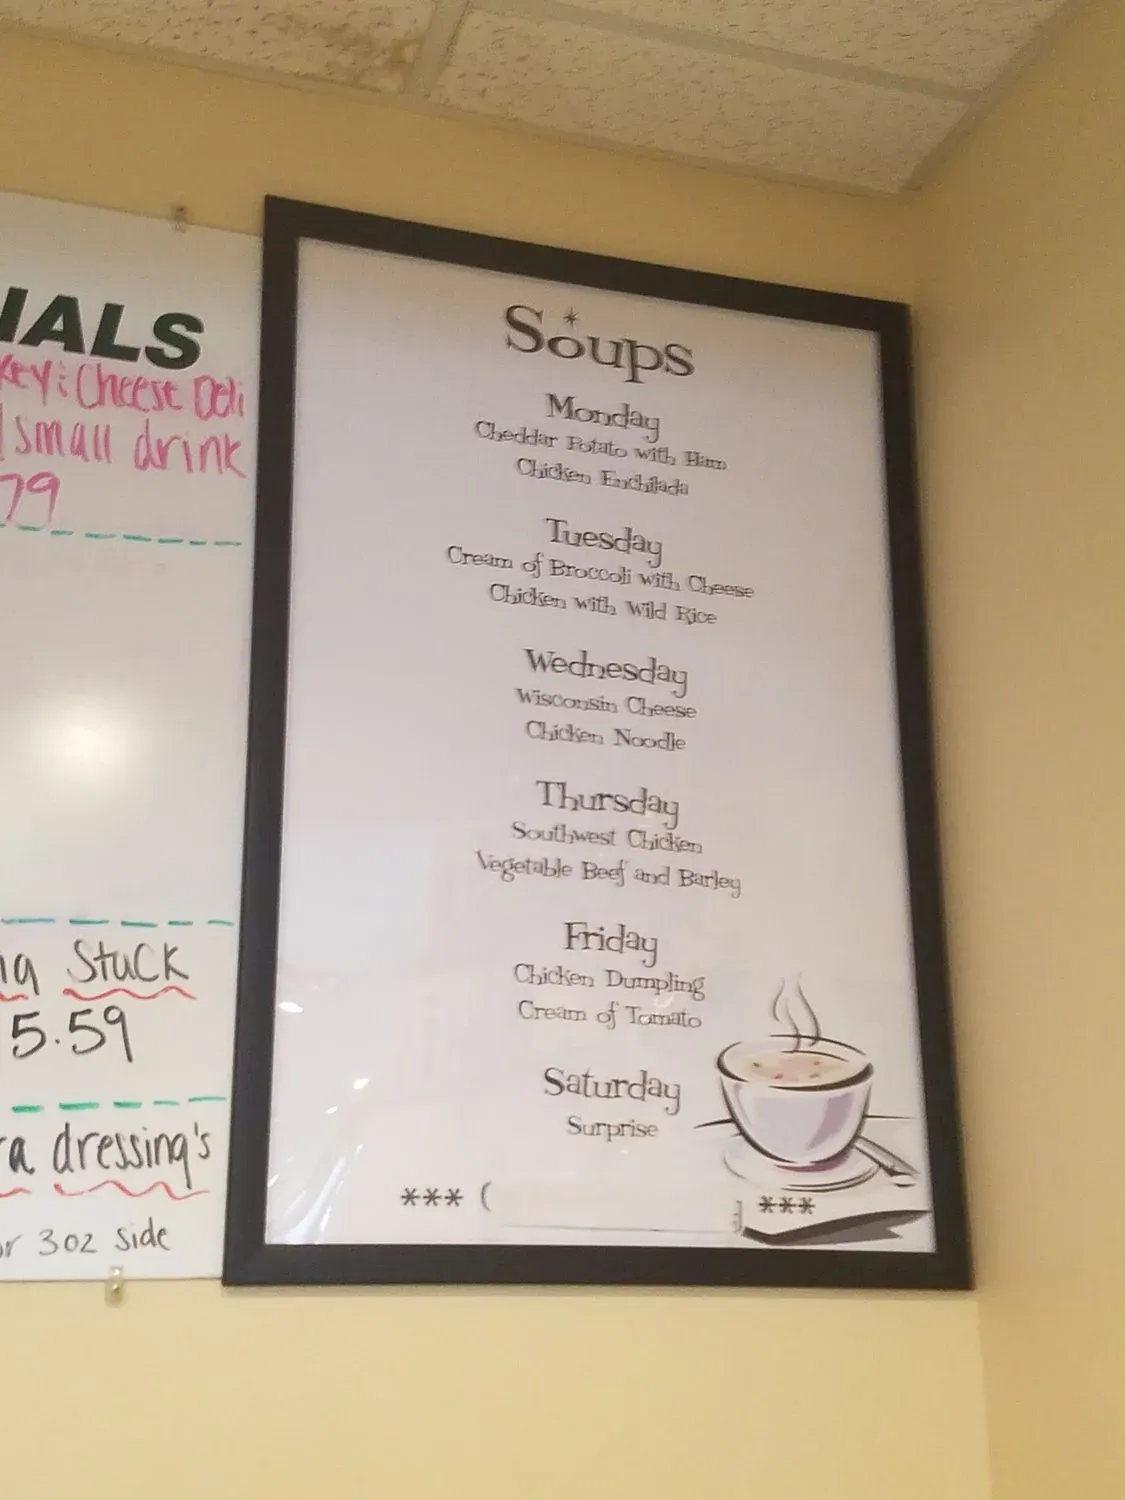 IALS
key & Cheese Deli
small drink
79
Stuck
5.59
a dressing's
or 3oz side
Soups
Monday
Cheddar Potato with Ham
Chicken Enchilada
Tuesday
Cream of Broccoli with Cheese
Chicken with Wild Rice
Wednesday
Wisconsin Cheese
Chicken Noodle
Thursday
Southwest Chicken
Vegetable Beef and Barley
Friday
Chicken Dumpling
Cream of Tomato
Saturday
Surprise
*** ( ***